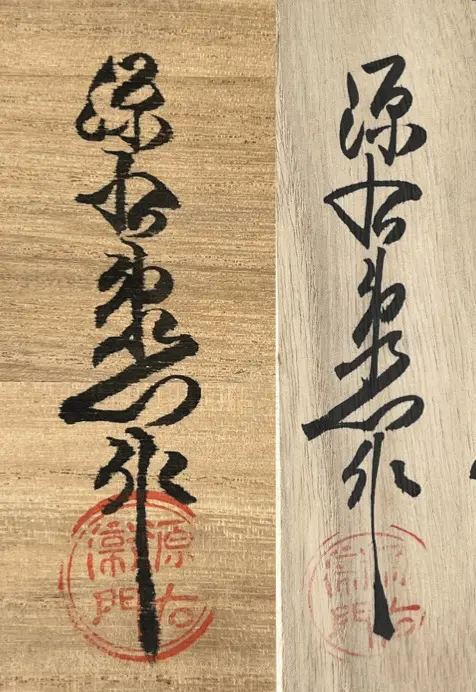 源右衛門作
源右
衛門
源右衛門作
源右
衛門